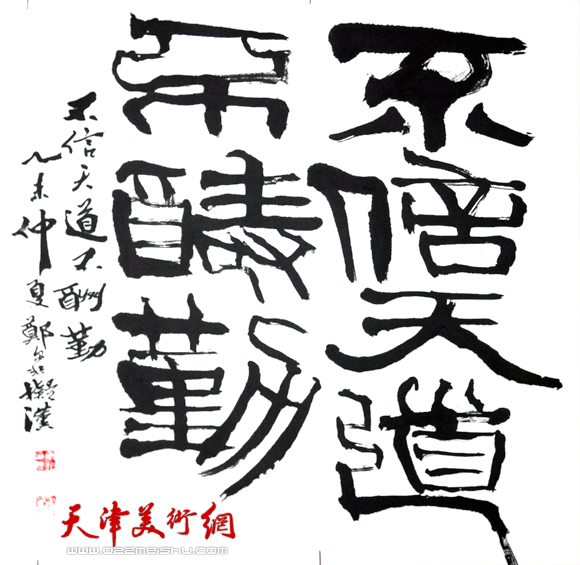 不信天道
不酬勤
不信天道不酬勤
乙未仲夏鄭擬漢
天津美術網
www.022meishu.com